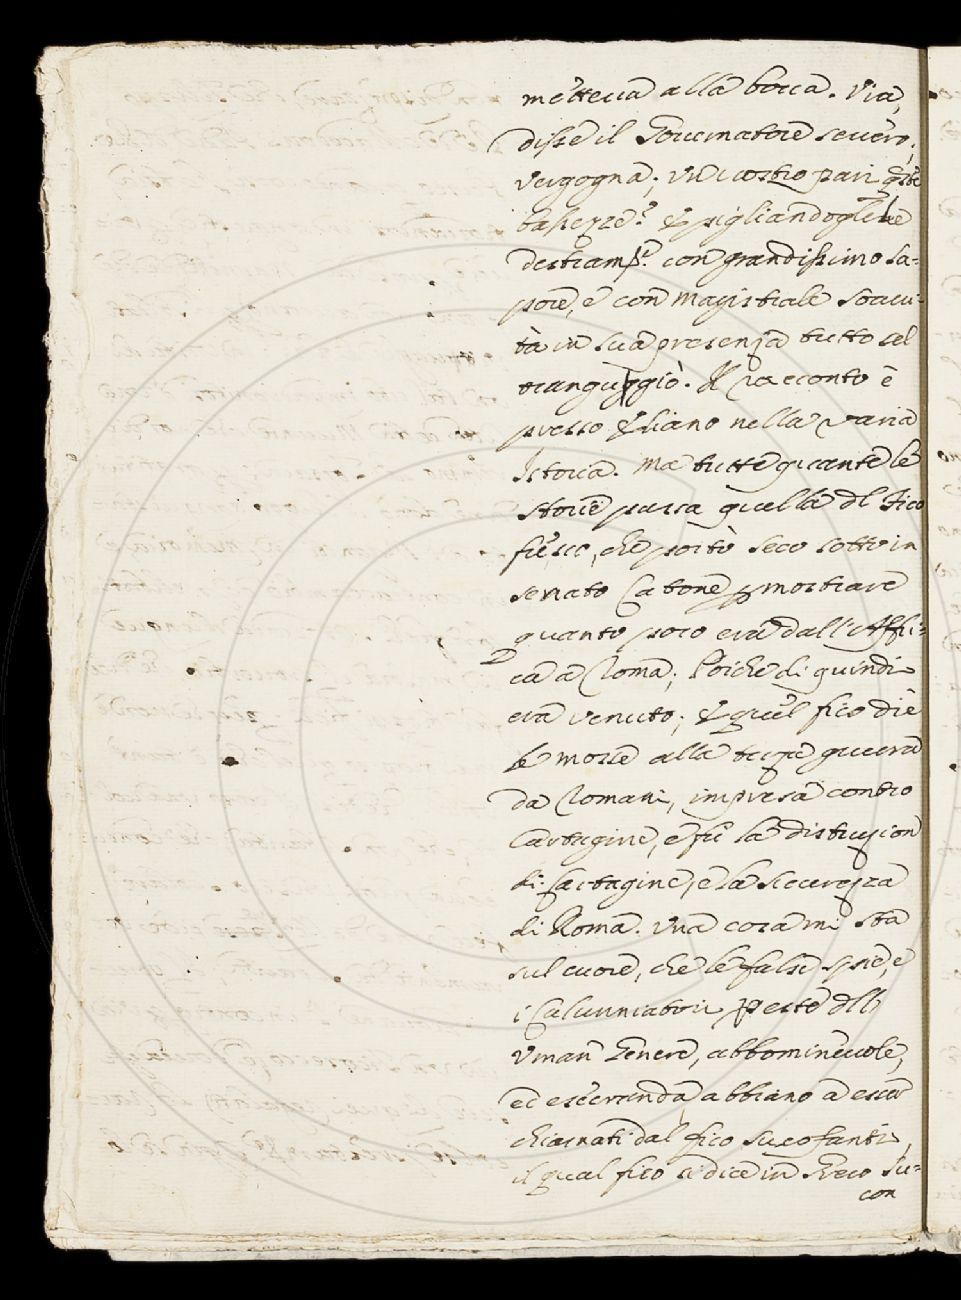 metteva alla bocca. Via,
disse il Governatore severo,
vergogna; un vostro pari q.ste
bascezze? E pigliandogliele
destram.te con grandissimo sa=
pore, e con magistrale soavi-
tà in sua presenza tutto sel
trangugiò. Il racconto è
presso Eliano nella varia
Istoria. Ma tutte quante le
storie passa quella dl Fico
fresco, che portò seco sotto in
senato Catone p mostrare
quanto poco era dall'Affri=
ca a Roma; Poiche di quindi
era venuto; E quel fico diè
le mosse alla terza guerra
da Romani, impresa contro
Cartagine, e fù la distruzion
di Cartagine, e la sicurezza
di Roma. Una cosa mi sta
sul cuore, che le false spie, e
i Calunniatori peste dll
Uman Genere, abbominevole,
ed esecranda, abbiano a esser
chiamati dal fico Sucofanti,
il qual fico si dice in Greco Su=
con